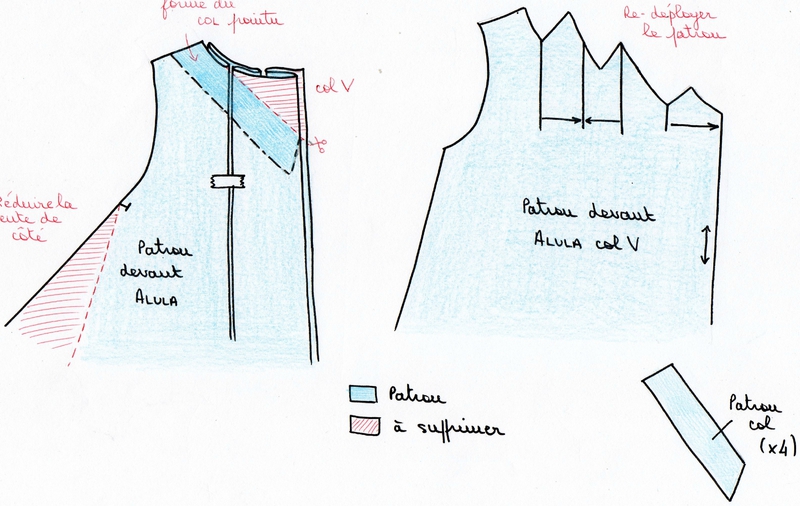 forme du
col pointu
col V
Réduire la
pente de
côté
Patron
devant
ALULA
Re-déployer
le patron
Patron devant
ALULA col V
Patron
à supprimer
Patron
col
(x4)